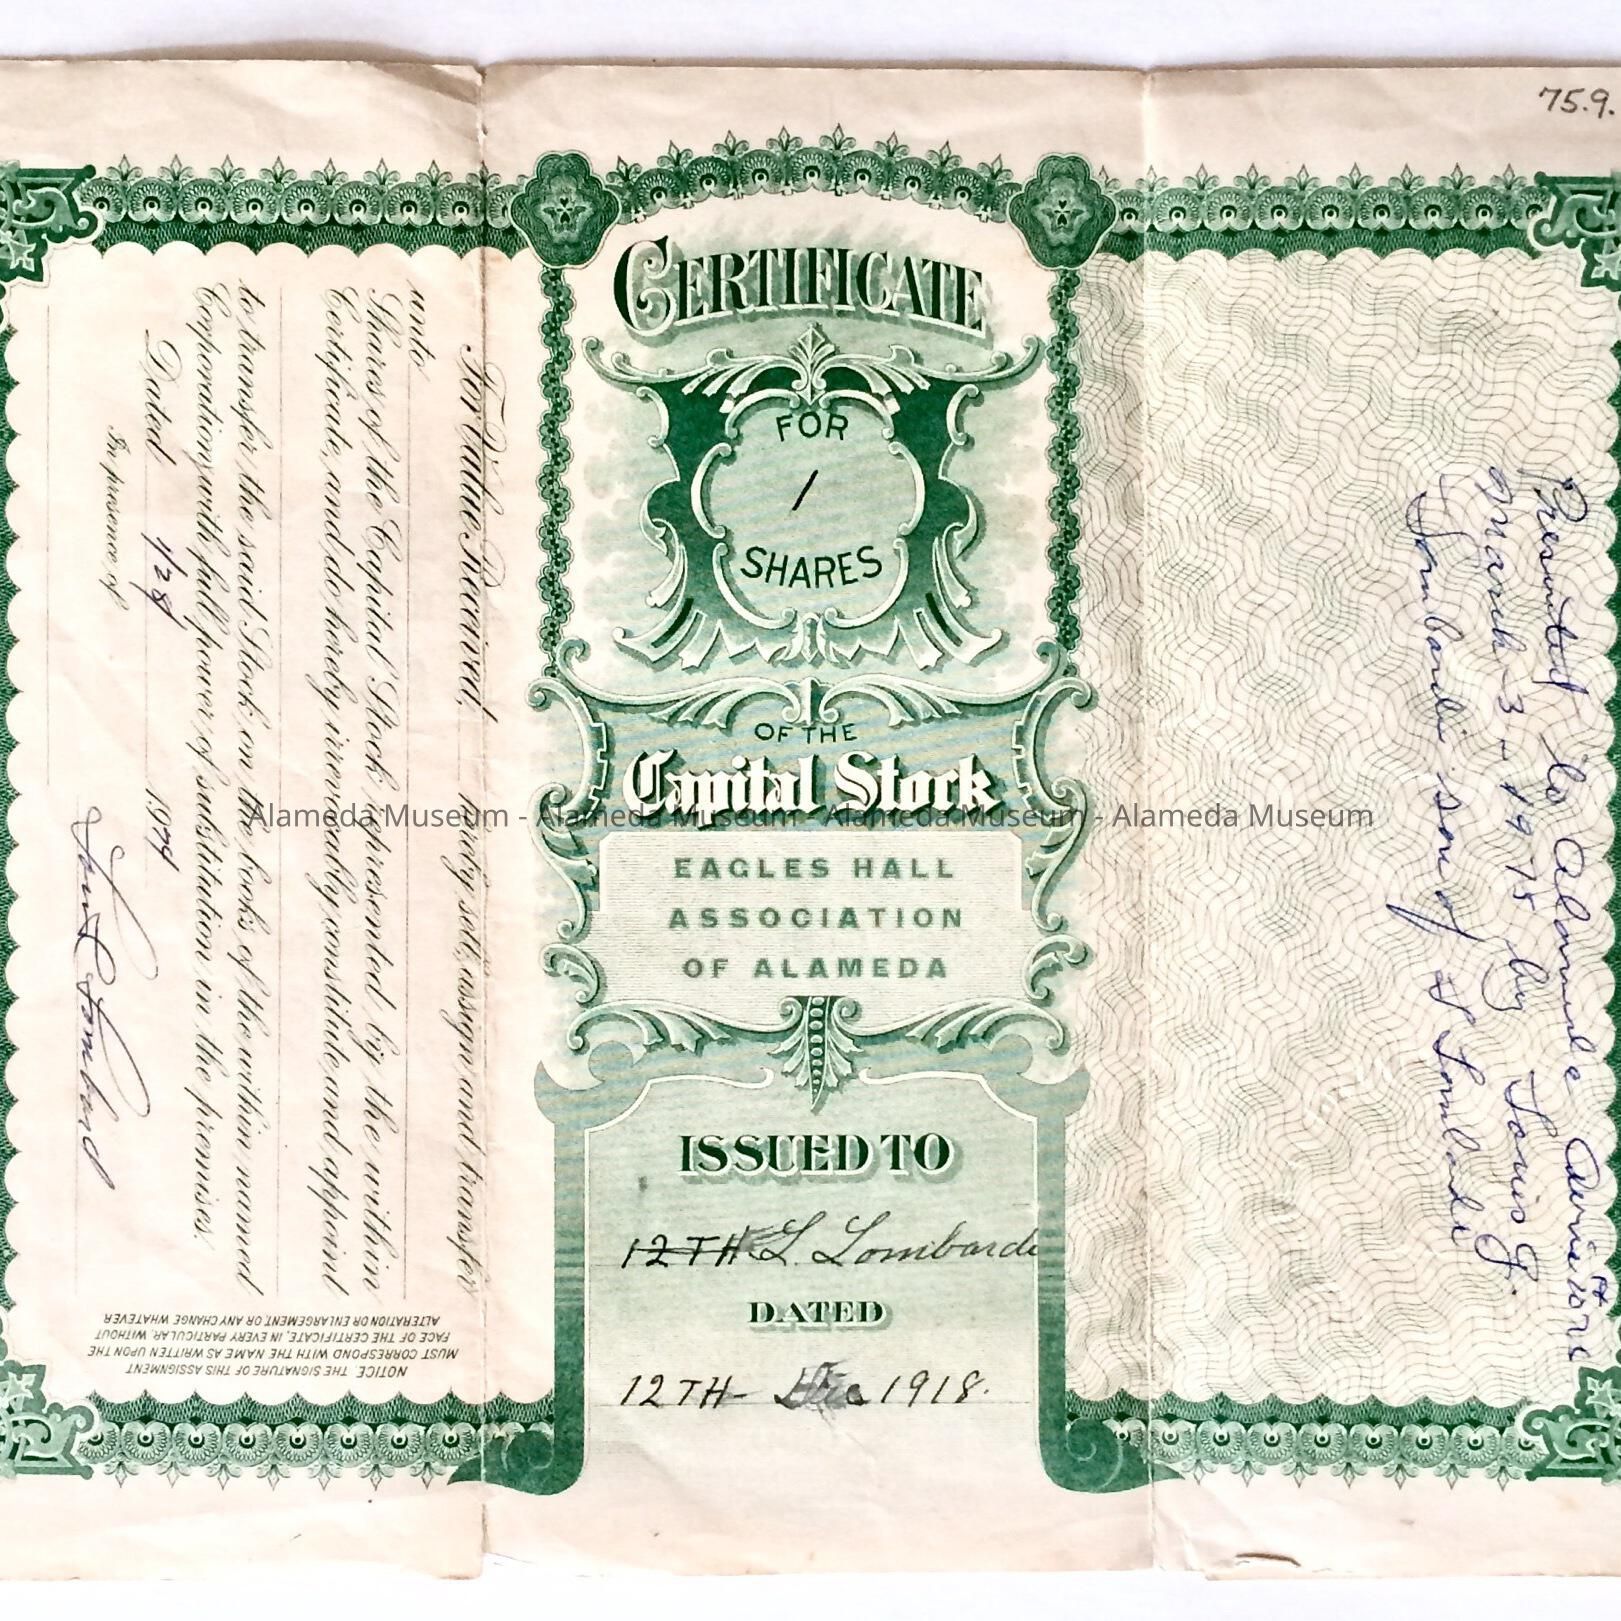 75.9.
CERTIFICATE
FOR
1
SHARES
OF THE
Capital Stock
EAGLES HALL
ASSOCIATION
OF ALAMEDA
ISSUED TO
12TH L. Lombardi
DATED
12TH- Dec 1918.
For Value Received, hereby sell, assign and transfer
unto
Shares of the Capital Stock represented by the within
Certificate, and do hereby irrevocably constitute and appoint
to transfer the said Stock on the books of the within named
Corporation, with full power of substitution in the premises.
Dated 1/28 1974
In presence of
NOTICE. THE SIGNATURE OF THIS ASSIGNMENT
MUST CORRESPOND WITH THE NAME AS WRITTEN UPON THE
FACE OF THE CERTIFICATE, IN EVERY PARTICULAR, WITHOUT
ALTERATION OR ENLARGEMENT, OR ANY CHANGE WHATEVER
Presented to Alameda
March 3-1975 by Louis J.
Lombardi son of L Lombardi
Alameda Museum - Alameda Museum - Alameda Museum - Alameda Museum